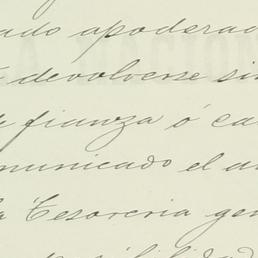 ado apoderad
devolverse sin
fianza ó ca
municado el a
a Tesoreria gen